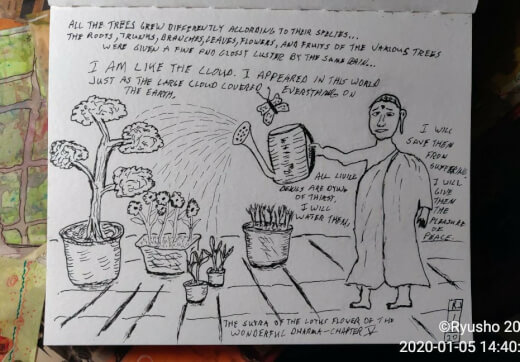 ALL THE TREES GREW DIFFERENTLY ACCORDING TO THEIR SPECIES...
THE ROOTS, TRUNKS, BRANCHES, LEAVES, FLOWERS, AND FRUITS OF THE VARIOUS TREES
WERE GIVEN A FINE AND GLOSSY LUSTER BY THE SAME RAIN...
I AM LIKE THE CLOUD. I APPEARED IN THIS WORLD
JUST AS THE LARGE CLOUD COVERED EVERYTHING ON
THE EARTH.
I WILL
SAVE THEM
FROM
SUFFERING.
I WILL
GIVE
THEM
THE
PLEASURE
OF
PEACE.
ALL LIVING
BEINGS ARE DYING
OF THIRST.
I WILL
WATER THEM,
THE SUTRA OF THE LOTUS FLOWER OF THE
WONDERFUL DHARMA - CHAPTER V
©Ryusho 20
2020-01-05 14:40: